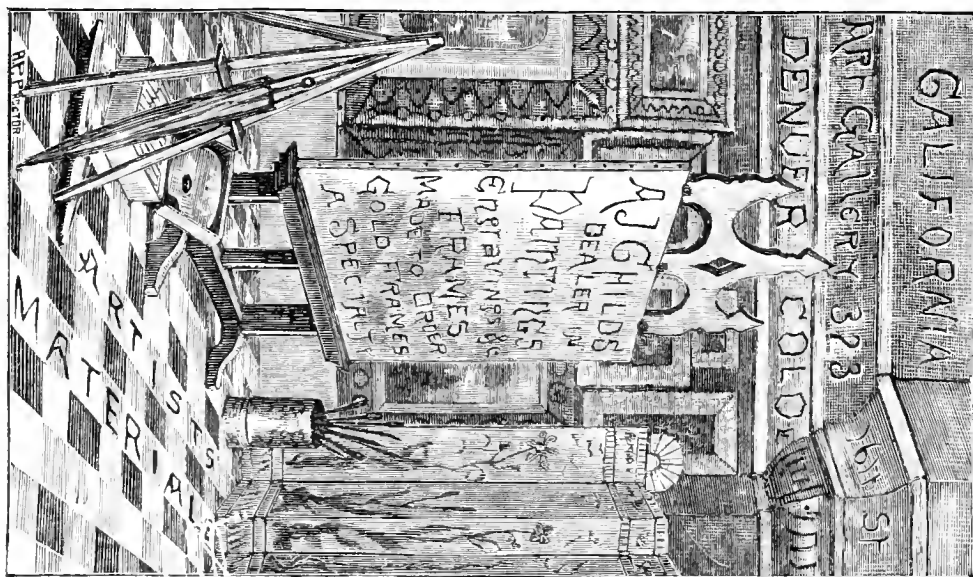 CALIFORNIA
ART GALLERY 323 16th St
DENVER COLO
A J CHILDS
DEALER IN
PAINTINGS
ENGRAVINGS &C
FRAMES
MADE TO ORDER
GOLD FRAMES
A SPECIALTY
ARTISTS
MATERIALS